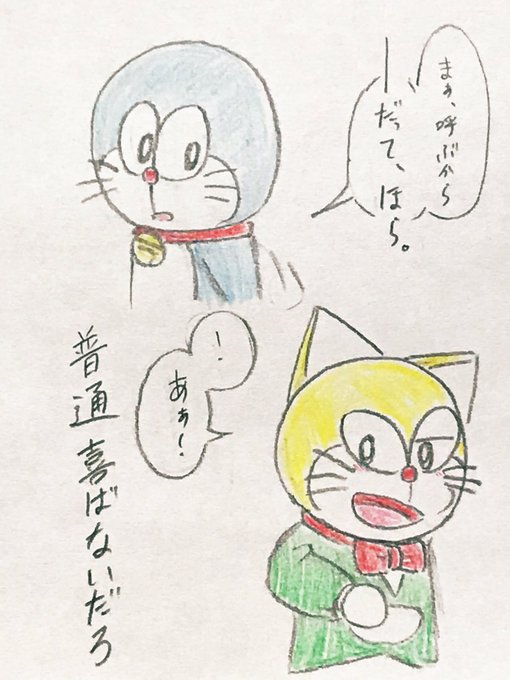 まぁ、呼ぶから
だって、ほら。
！
あぁ！
普通喜ばないだろ